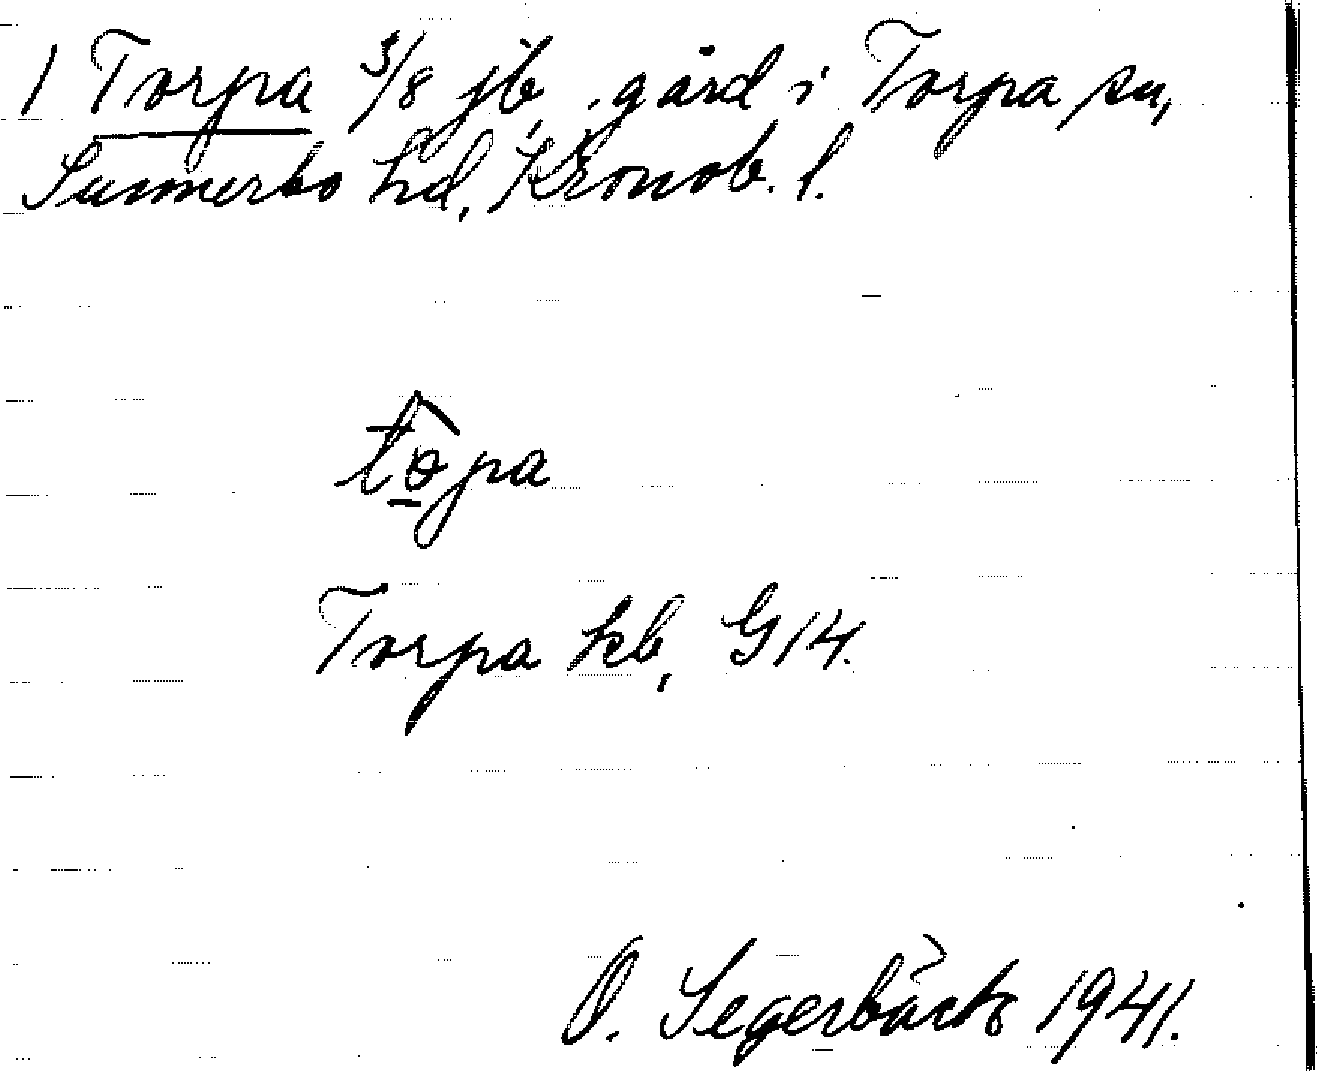 1 Torpa 5/8 jb, gård i Torpa sn,
Sunnerbo hd, Kronob. l.
to̱pa
Torpa kb, G 14.
O. Segerbäck 1941.